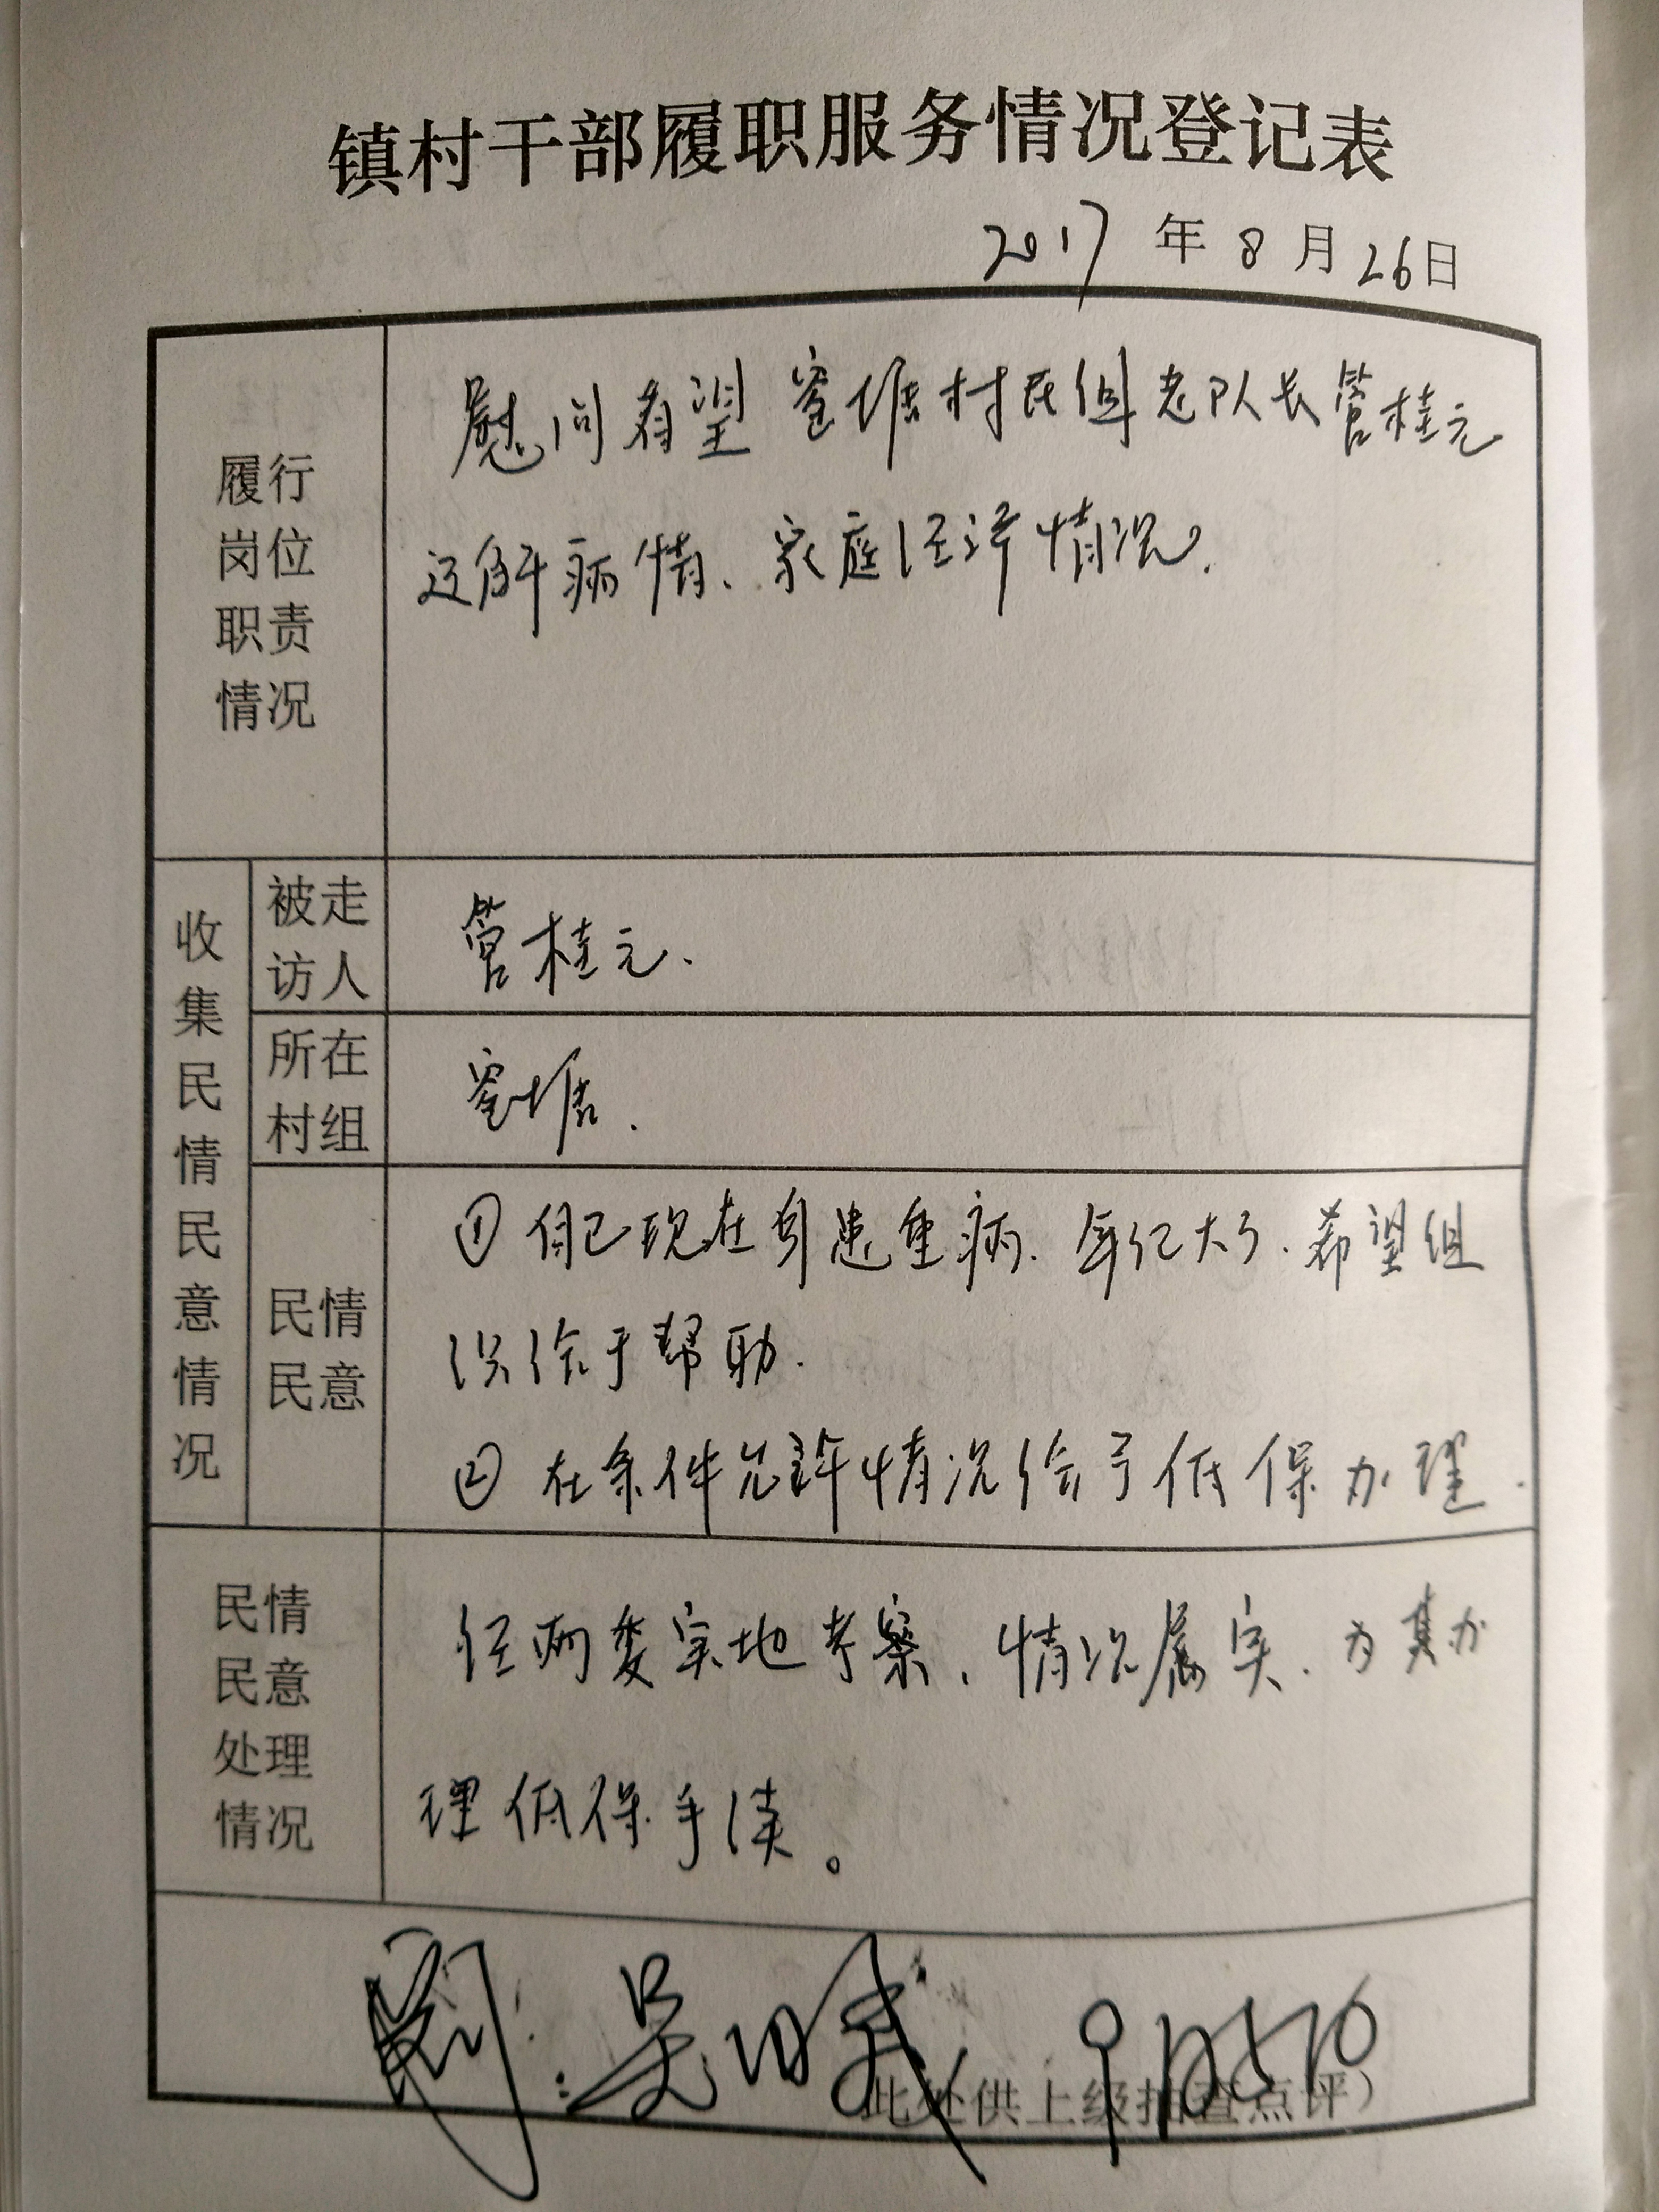 镇村干部履职服务情况登记表
2017年8月26日
履行
岗位
职责
情况
慰问看望窑塘村民组老队长管桂元
这解病情、家庭经济情况.
收集民情民意情况
被走
访人
管桂元.
所在
村组
窑塘.
民情
民意
①自己现在身患重病.年纪大了.希望组
织给于帮助.
②在条件允许情况给予低保办理.
民情
民意
处理
情况
经两委实地考察、情况属实.为其办
理低保手续。
此处供上级抽查点评）